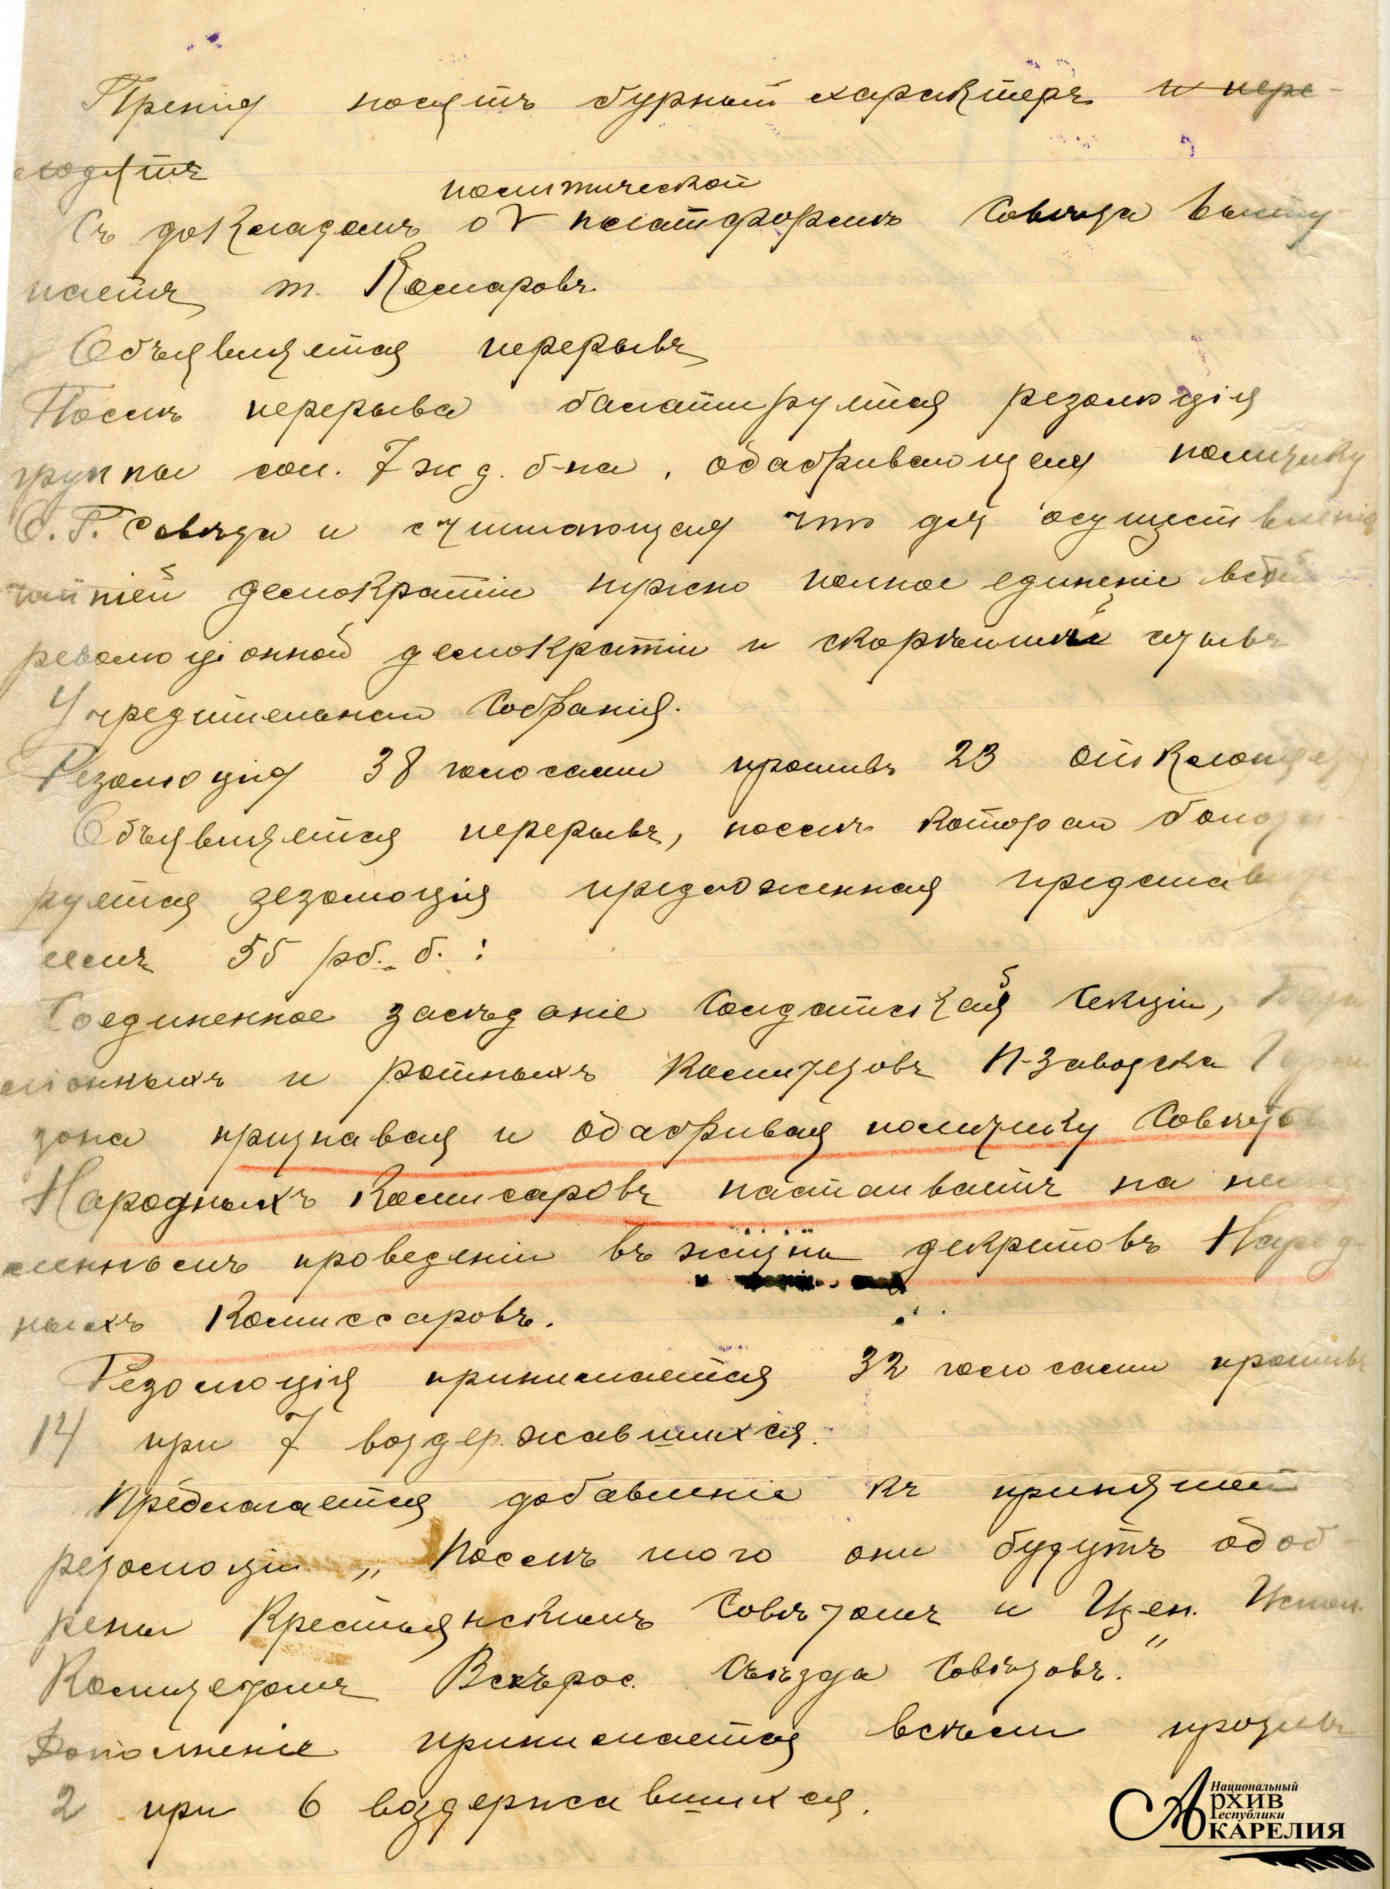 Пренія носятъ бурный характеръ и пере-
ходятъ
политической
Съ докладомъ о платформѣ Совѣта высту
паетъ т. Комаровъ
Объявляется перерывъ
Послѣ перерыва балатируется резолюція
группы сол. 7 ж д. б-на, одабривающая политику
О. Г. Совѣта и считающая что для осуществленія
демократіи нужно полное единеніе всей
революціонной демократіи и скорѣйшій созывъ
Учредительнаго Собранія.
Резолюція 38 голосами противъ 23 отклонена
Объявляется перерывъ, послѣ котораго балоти-
руется резолюція предложенная представи
лемъ 55 рб. б. :
Соединенное засѣданіе Солдатской Секціи,
ліонныхъ и ротныхъ Комитетовъ П-Заводска Гарни
зона признавая и одабривая политику Совѣта
Народныхъ Комисаровъ настаиваетъ на немед
ленномъ проведеніи въ жизнь декретовъ Народ-
ныхъ Комиссаровъ.
Резолюція принимается 32 голосами противъ
14 при 7 воздержавшихся.
Предлагается добавленіе къ принятой
резолюціи „Послѣ того они будутъ одоб-
рены Крестьянскимъ Совѣтомъ и Цен. Испол.
Комитетомъ Всѣрос. Съѣзда Совѣтовъ."
Дополненіе принимается всѣми противъ
2 при 6 воздержавшихся.
Национальный
Архив
Республики
Карелия